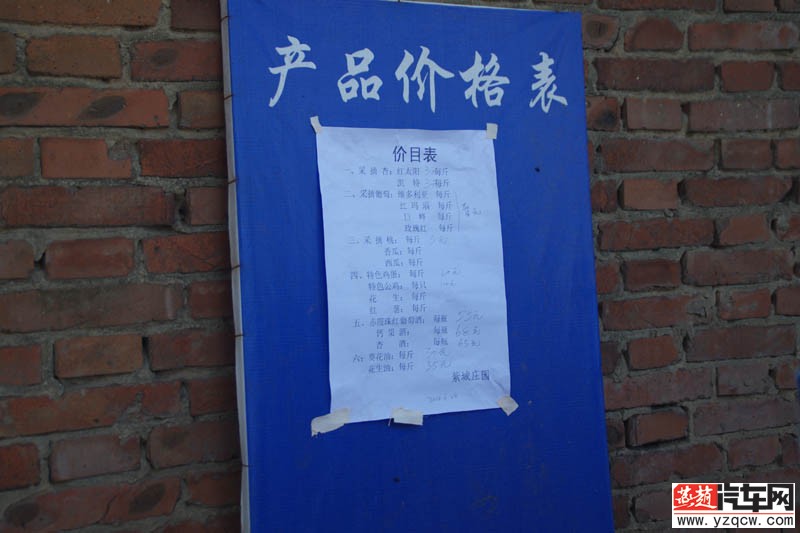 产品价格表
价目表
一、采摘杏：红太阳 每斤
凯特 每斤
二、采摘葡萄：维多利亚 每斤
红玛瑙 每斤
巨峰 每斤
玫瑰红 每斤
三、采摘桃： 每斤
香瓜：每斤
西瓜：每斤
四、特色鸡蛋： 每斤
特色公鸡： 每只
花生： 每斤
红薯： 每斤
五、赤霞珠红葡萄酒： 每瓶 55元
钙果酒： 每瓶 68元
杏酒： 每瓶 45元
六、葵花油：每斤
花生油：每斤 35元
紫城庄园
燕赵汽车网
www.yzqcw.com